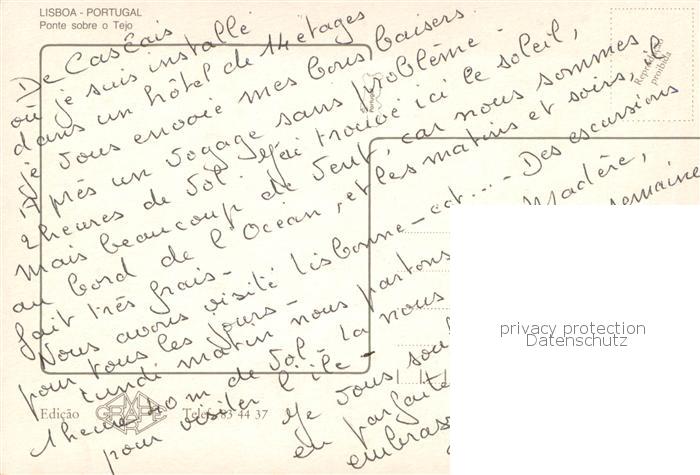 LISBOA - PORTUGAL
Ponte sobre o Tejo
De Cascais
où je suis installé
dans un hôtel de 14 étages
je vous envoie mes bons baisers.
Après un voyage sans problème -
2 heures de vol. J'ai trouvé ici le soleil,
mais beaucoup de vent, car nous sommes
au bord de l'Océan, et les matins et soirs, il
fait très frais -
Nous avons visité Lisbonne - ect... - Des excursions
pour tous les jours -
Lundi matin nous partons Madère,
1 heure 40 m de vol - La nous semaine
pour visiter l'île -
Je vous sou
en parfaite
embrass
Portugal
Reprodução
proibida
Edição
GRAFER
Telef. 83 44 37
privacy protection
Datenschutz